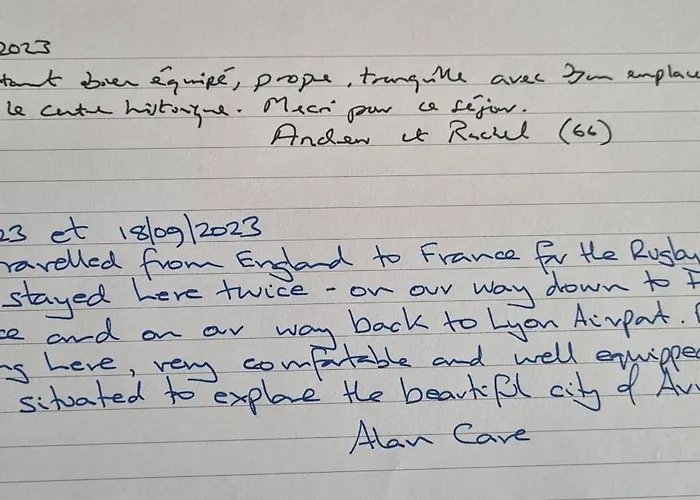 2023
tant bien équipé, propre, tranquille avec bon emplace
le centre historique. Merci pour ce séjour.
Andrew et Rachel (66)
23 et 18/09/2023
ravelled from England to France for the Rugby
stayed here twice - on our way down to
ce and on our way back to Lyon Airport.
ng here, very comfortable and well equipped
situated to explore the beautiful city of Avi
Alan Care